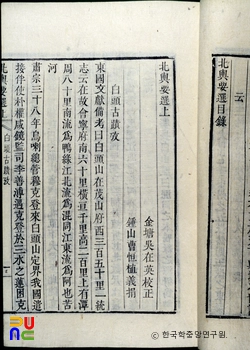 云
北輿要選目錄
北輿要選上
金塘吳在英校正
鍾山曹恒愷義捐
白頭古蹟攷
東國文獻備考曰白頭山在茂山府西三百五十里一統
志云在故會寧府南六十里橫亘千里高二百里上有潭
周八十里南流爲鴨綠江北流爲混同江東流爲阿也苦
河
肅宗三十八年烏喇總管穆克登來白頭山定界我國遣
接伴使朴權咸鏡監司李善溥遇克登於三水之蓮困克
北輿要選上 白頭古蹟攷 一
한국학중앙연구원